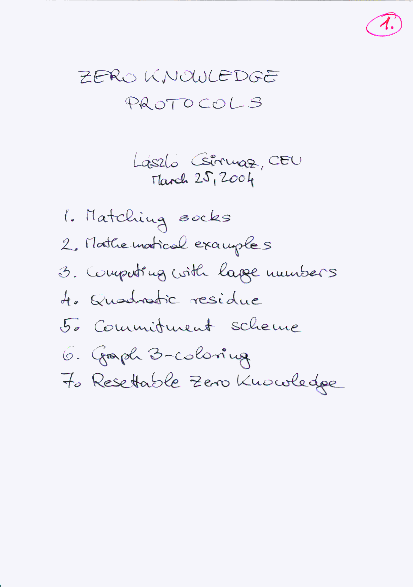 1.
ZERO KNOWLEDGE
PROTOCOLS
Laszló Csirmaz, CEU
March 25, 2004
1. Matching socks
2. Mathematical examples
3. computing with large numbers
4. Quadratic residue
5. Commitment scheme
6. Graph 3-coloring
7. Resettable Zero Knowledge